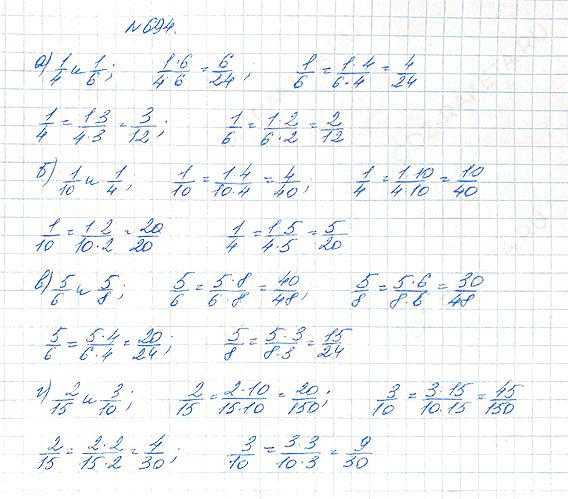 N 694.
а) 1/4 и 1/6; 1·6/4·6 = 6/24; 1/6 = 1·4/6·4 = 4/24
1/4 = 1·3/4·3 = 3/12; 1/6 = 1·2/6·2 = 2/12
б) 1/10 и 1/4; 1/10 = 1·4/10·4 = 4/40; 1/4 = 1·10/4·10 = 10/40
1/10 = 1·2/10·2 = 20/20 1/4 = 1·5/4·5 = 5/20
в) 5/6 и 5/8; 5/6 = 5·8/6·8 = 40/48; 5/8 = 5·6/8·6 = 30/48
5/6 = 5·4/6·4 = 20/24; 5/8 = 5·3/8·3 = 15/24
г) 2/15 и 3/10; 2/15 = 2·10/15·10 = 20/150; 3/10 = 3·15/10·15 = 45/150
2/15 = 2·2/15·2 = 4/30; 3/10 = 3·3/10·3 = 9/30